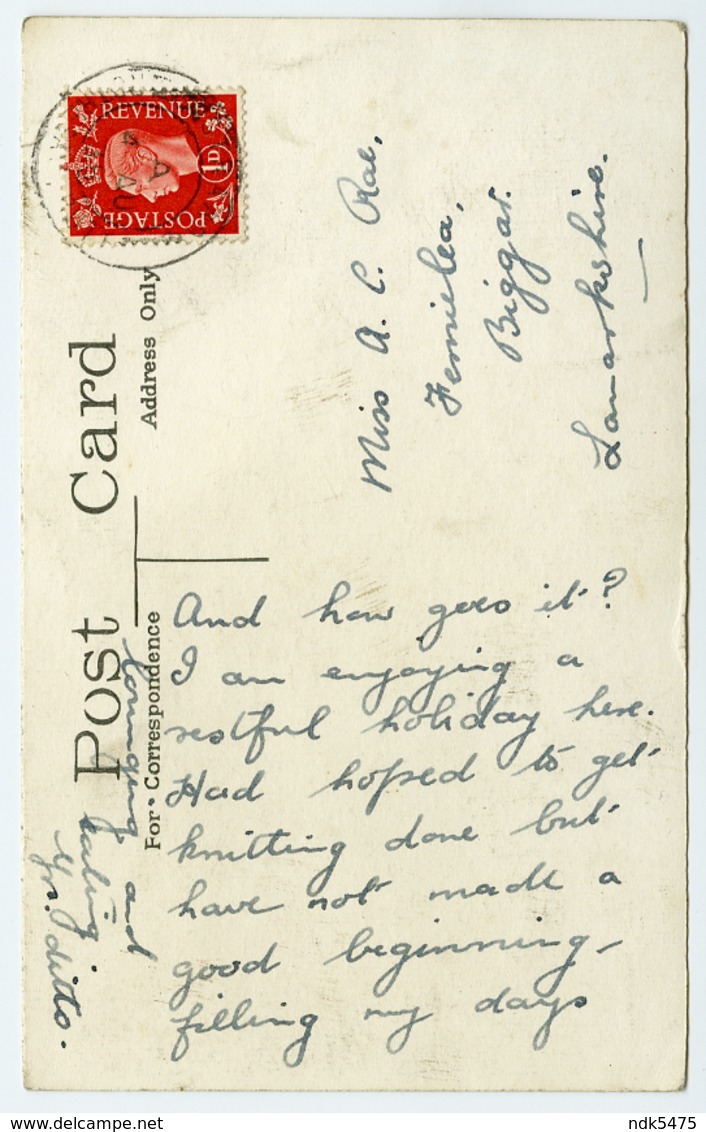 REVENUE
1D
POSTAGE
Post Card
For Correspondence
Address Only
Miss A. C. Rae,
Fernielea,
Biggar.
Lanarkshire.
And how goes it?
I am enjoying a
restful holiday here.
Had hoped to get
knitting done but
have not made a
good beginning -
filling my days
lounging and
eating
Yrs. ditto.
delcampe.net
ndk5475